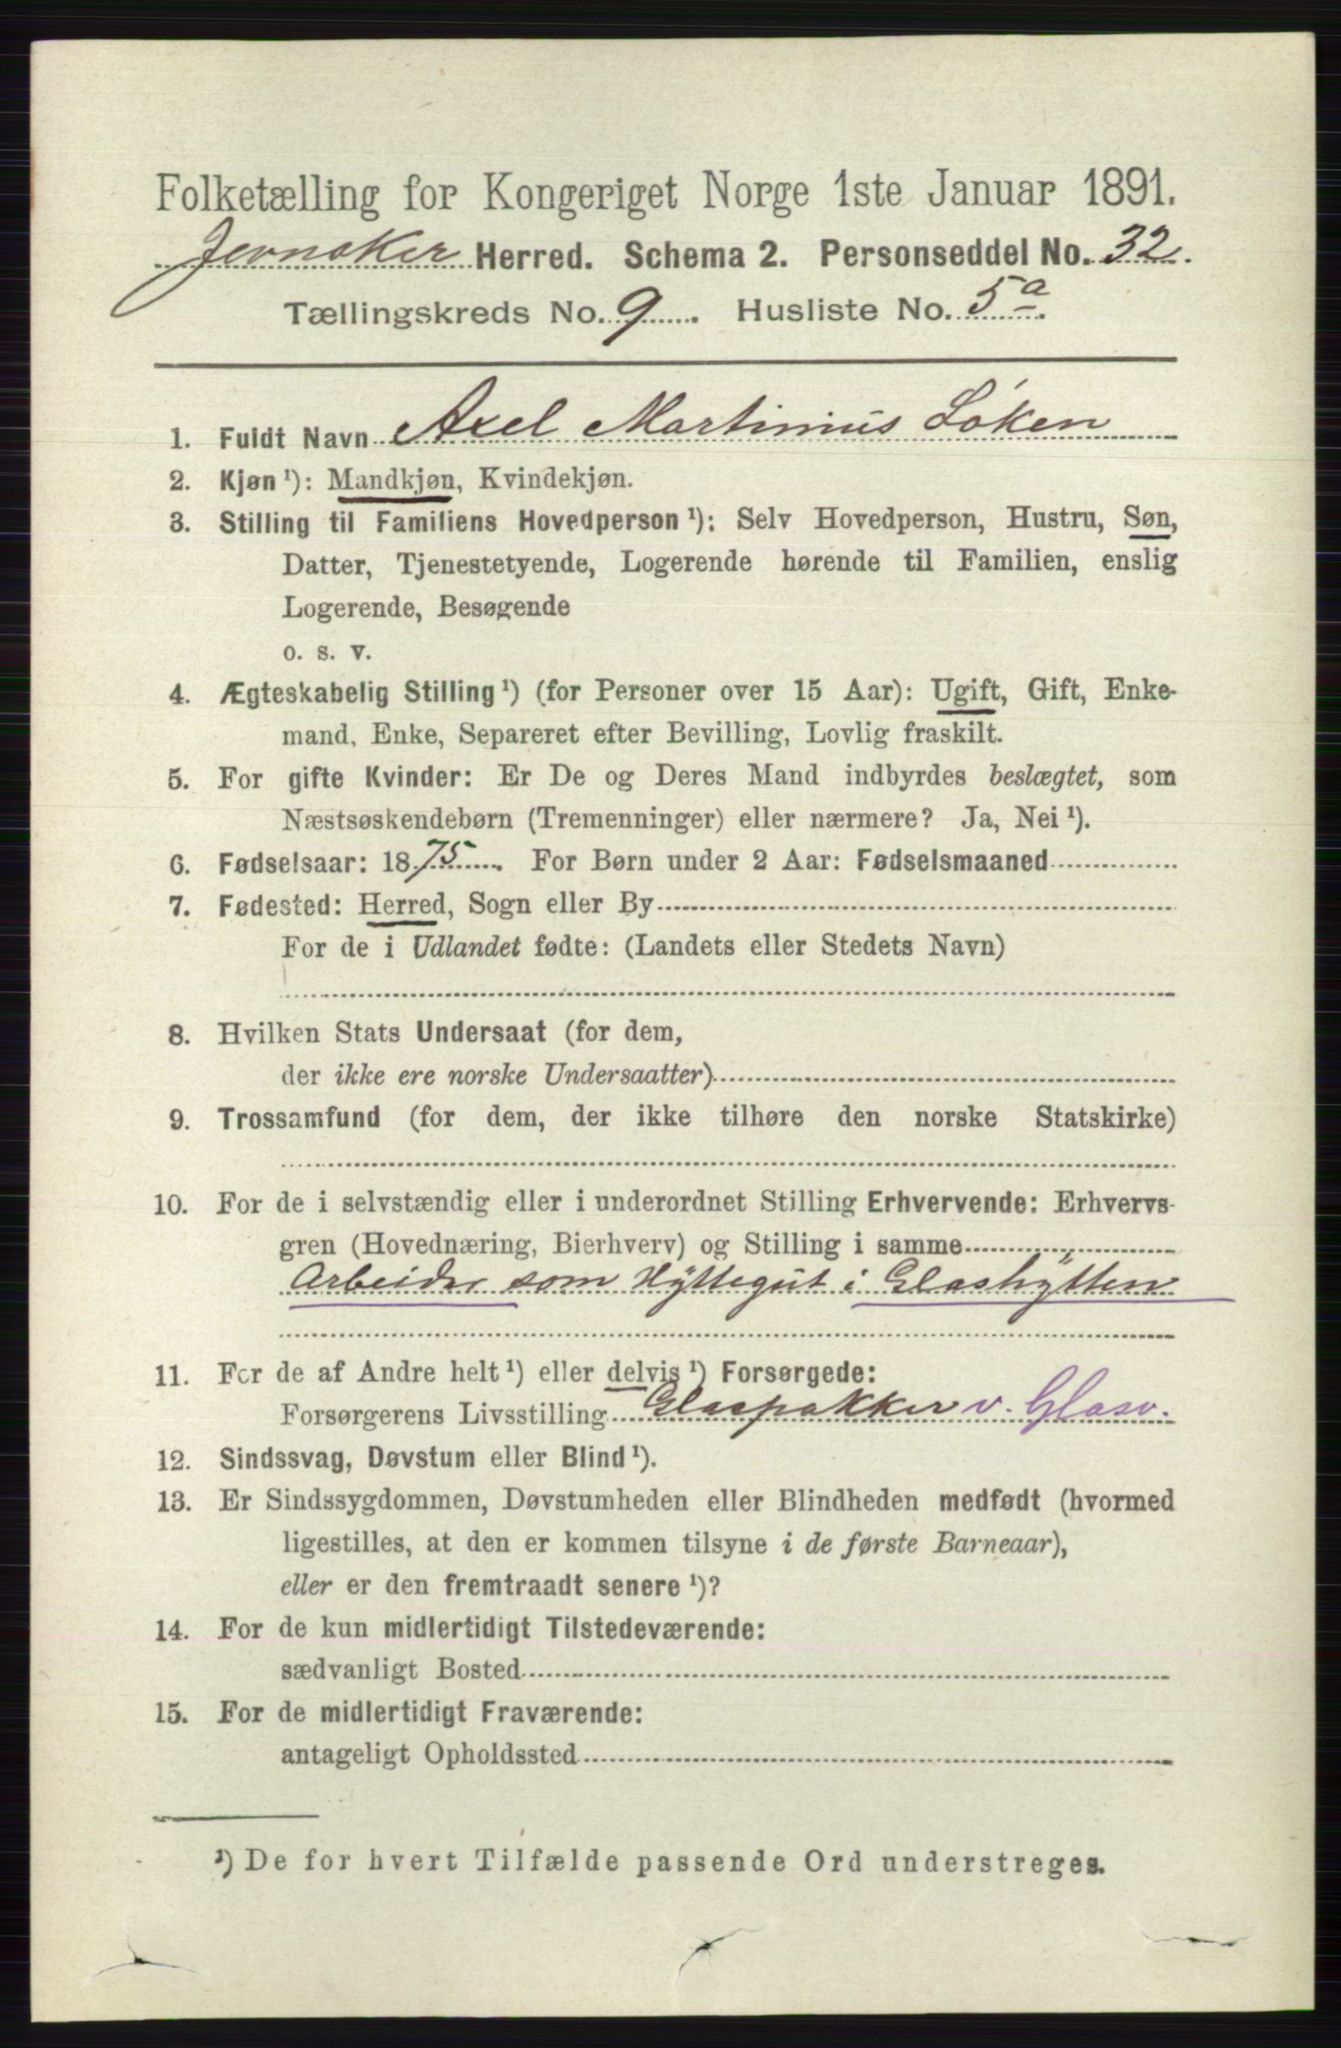 Folketælling for Kongeriget Norge 1ste Januar 1891.
Jevnaker Herred. Schema 2. Personseddel No. 32.
Tællingskreds No. 9. Husliste No. 5a.
1. Fuldt Navn Axel Martinius Løken
2. Kjøn ¹): Mandkjøn, Kvindekjøn.
3. Stilling til Familiens Hovedperson ¹): Selv Hovedperson, Hustru, Søn,
Datter, Tjenestetyende, Logerende hørende til Familien, enslig
Logerende, Besøgende
o. s. v.
4. Ægteskabelig Stilling ¹) (for Personer over 15 Aar): Ugift, Gift, Enke-
mand, Enke, Separeret efter Bevilling, Lovlig fraskilt.
5. For gifte Kvinder: Er De og Deres Mand indbyrdes beslægtet, som
Næstsøskendebørn (Tremenninger) eller nærmere? Ja, Nei ¹).
6. Fødselsaar: 1875. For Børn under 2 Aar: Fødselsmaaned
7. Fødested: Herred, Sogn eller By
For de i Udlandet fødte: (Landets eller Stedets Navn)
8. Hvilken Stats Undersaat (for dem,
der ikke ere norske Undersaatter)
9. Trossamfund (for dem, der ikke tilhøre den norske Statskirke)
10. For de i selvstændig eller i underordnet Stilling Erhvervende: Erhvervs-
gren (Hovednæring, Bierhverv) og Stilling i samme
Arbeider som Hyttegut i Glashytten
11. For de af Andre helt ¹) eller delvis ¹) Forsørgede:
Forsørgerens Livsstilling Glaspakker v. Glasv.
12. Sindssvag, Døvstum eller Blind ¹).
13. Er Sindssygdommen, Døvstumheden eller Blindheden medfødt (hvormed
ligestilles, at den er kommen tilsyne i de første Barneaar),
eller er den fremtraadt senere ¹)?
14. For de kun midlertidigt Tilstedeværende:
sædvanligt Bosted
15. For de midlertidigt Fraværende:
antageligt Opholdssted
¹) De for hvert Tilfælde passende Ord understreges.